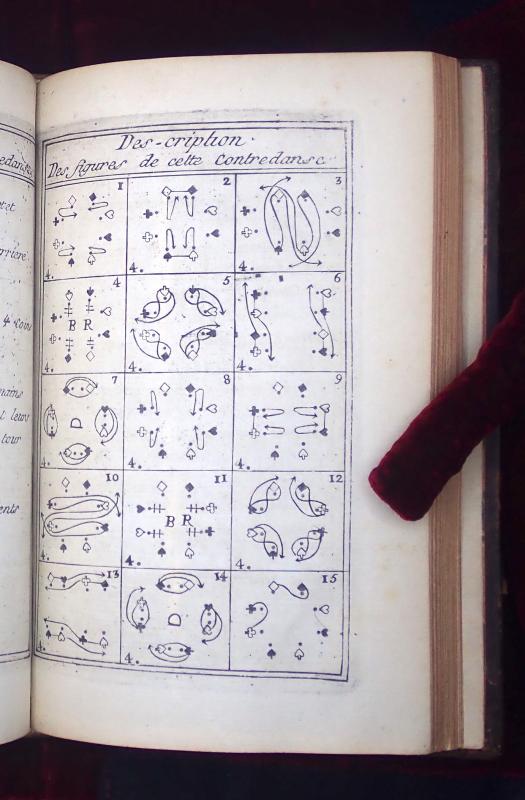 Des-cription
Des figures de cette Contredanse
1 2 3
4. 4. 4.
4 5 6
B R
4. 4. 4.
7 8 9
D
4. 4. 4.
10 11 12
B R
4. 4. 4.
13 14 15
D
4. 4.
rriere
4 coins
mains
t leurs
tour
ents